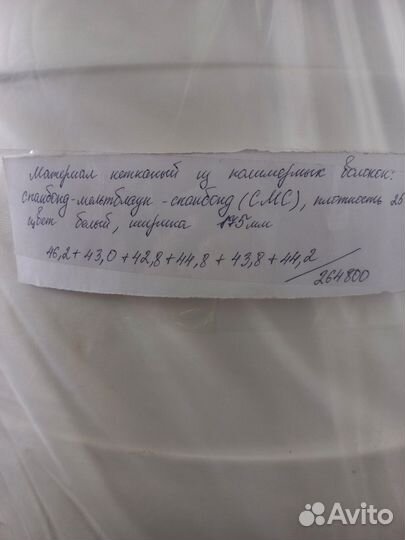 Материал нетканый из полимерных волокон:
спанбонд-мельтблаун-спанбонд (СМС), плотность 25
цвет белый, ширина 175мм
46,2+43,0+42,8+44,8+43,8+44,2
264800
Avito